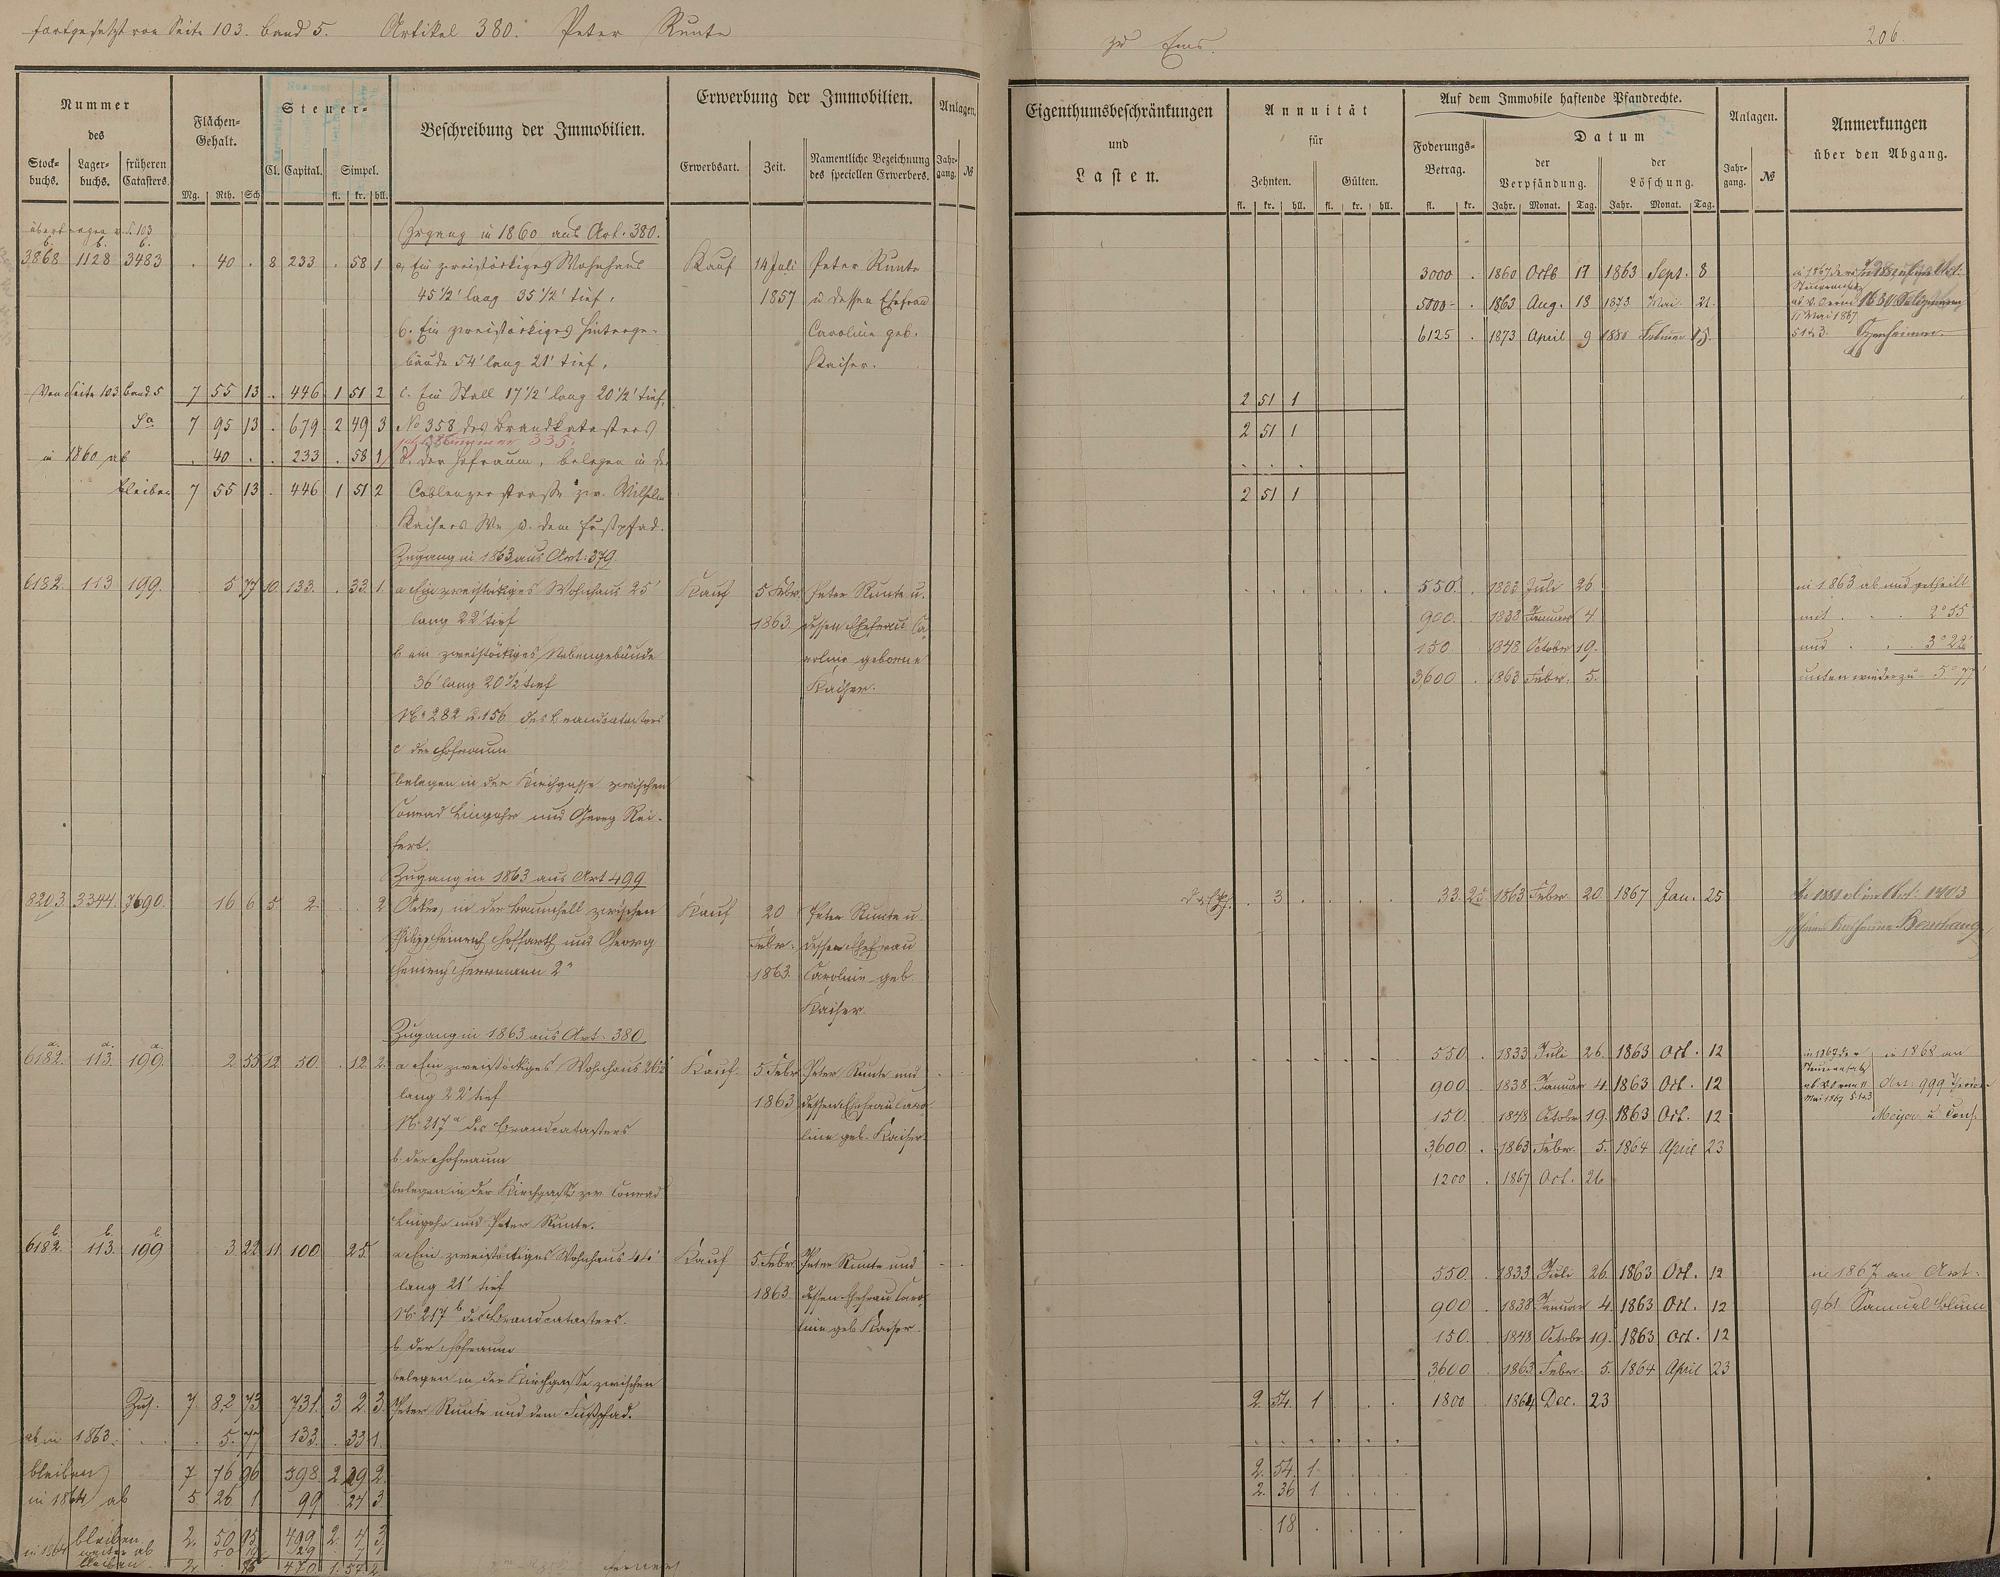 fortgesetzt von Seite 103. Band 5. Artikel 380. Peter Runte
zu Ems. 206.
Nummer
des
Stock-
buchs.
Lager-
buchs.
früheren
Catasters.
Flächen-
Gehalt.
Mg. Rth. Sch
Steuer-
Cl. Capital. Simpel.
fl. kr. hll.
Beschreibung der Immobilien.
Erwerbung der Immobilien.
Erwerbsart. Zeit.
Namentliche Bezeichnung
des speciellen Erwerbers.
Anlagen.
Jahr-
gang. №
Eigenthumsbeschränkungen
und
Lasten.
Annuität
für
Zehnten. Gülten.
fl. kr. hll. fl. kr. hll.
Auf dem Immobile haftende Pfandrechte.
Foderungs-
Betrag.
fl. kr.
Datum
der
Verpfändung.
der
Löschung.
Jahr. Monat. Tag. Jahr. Monat. Tag.
Anlagen.
Jahr-
gang. №
Anmerkungen
über den Abgang.
übertragen v. S. 103
Zugang in 1860 aus Art. 380.
b. b. b.
3868 1128 3483 . 40 . 8 233 . 58 1 a, Ein zweistöckiges Wohnhaus Kauf 14 Juli Peter Runte
45 1/2' lang 35 1/2' tief, 1857 u dessen Ehefrau
b. Ein zweistöckiges Hinterge- Caroline geb.
bäude 54' lang 21' tief, Kaiser.
3000 . 1860 Octb 17 1863 Sept. 8
5000 - 1863 Aug. 13 1873 Mai. 21.
11 Mai 1867
6125 . 1873 April 9 1880 Februar 15.
§ 1 & 3.
Von Seite 103 Band 5 7 55 13 . 446 1 51 2 c. Ein Stall 17 1/2' lang 20 1/2' tief, 2 51 1
Sa 7 95 13 . 679 2 49 3 No 358 des Brandkatasters 2 51 1
jetzt Nummer 335.
in 1860 ab . 40 . . 233 . 58 1 d. der Hofraum, belegen in der . . .
bleiben 7 55 13 . 446 1 51 2 Coblenzer Straße zw. Wilhelm 2 51 1
Kaisers We u. dem Fußpfad.
Zugang in 1863 aus Art: 379
6182. 113 199. 5 77 10. 133. . 33. 1. a Ein zweistöckiges Wohnhaus 25' Kauf 5 Febr. Peter Runte u.
lang 22' tief 1863. dessen Ehefrau Ca-
b ein zweistöckiges Nebengebäude roline geborne
36' lang 20 1/2 tief Kaiser.
No 282 u. 156 des Brandcatasters
c der Hofraum
belegen in der Kirchgasse zwischen
Conrad Lingohr und Georg Rei-
fert.
550. . 1833 Juli 26. in 1863 ab und getheilt
900. . 1838 Januar 4. mit . . . 2° 55
150 1848 October 19. und . . . 3° 22'
3,600 . 1863 Febr. 5. unten wieder zu 5° 77'
Zugang in 1863 aus Art 499
8203 3344. 7690. 16 6 5 2. . . 2 Acker, in der Baumhell zwischen Kauf 20 Peter Runte u.
Philipp Heinrich Hoffarth und Georg Febr. dessen Ehefrau
Heinrich Herrmann 2r 1863. Caroline geb.
Kaiser.
. 3 . . . . 33. 25. 1863 Febr. 20. 1867 Jan. 25
Zugang in 1863 aus Art: 380
a. a. a.
6182. 113. 199. 2 55 12. 50. . 12. 2. a Ein zweistöckiges Wohnhaus 26 1/2' Kauf. 5 Febr. Peter Runte und
lang 22' tief 1863 dessen Ehefrau Caro-
No 217a des Brandcatasters line geb. Kaiser.
b. der Hofraum
belegen in der Kirchgasse zw. Conrad
Lingohr und Peter Runte.
550. . 1833 Juli 26. 1863 Oct. 12 in 1868 an
900. 1838 Januar 4. 1863 Oct. 12 Art: 999
Mai 1867 § 1 & 3
150. 1848 October 19. 1863 Oct. 12 Meyer u Cons.
3,600. . 1863 Febr. 5. 1864 April 23
1200 . 1867 Oct. 26
b. b. b.
6182. 113. 199 3 22 11. 100 . 25. . a Ein zweistöckiges Wohnhaus 44' Kauf 5. Febr. Peter Runte und
lang 21' tief 1863. dessen Ehefrau Caro-
No 217b des Brandcatasters. line geb Kaiser.
b. der Hofraum
belegen in der Kirchgasse zwischen
Peter Runte und dem Fußpfad.
550. . 1833 Juli 26. 1863 Oct. 12 in 1867 an Art.
900 . 1838 Januar 4. 1863 Oct. 12 961 Samuel Blum
150. . 1848 October 19. 1863 Oct. 12
3600 1863 Febr. 5. 1864 April 23
1800 1864 Dec. 23
Zus. 7. 82 73 731. 3 2. 3. 2. 54. 1 . .
ab in 1863. . . 5. 77 133. . 33 1.
bleiben 7. 76 96 598. 2 29 2. 2. 54. 1.
in 1864 ab 5. 26 1 99 24 3. 2. 36 1
bleiben 2. 50 95 499 2. 4 3. . 18.
in 1864 weiter ab 50 29 7 1
bleiben 2. . 95 470 1. 57 2